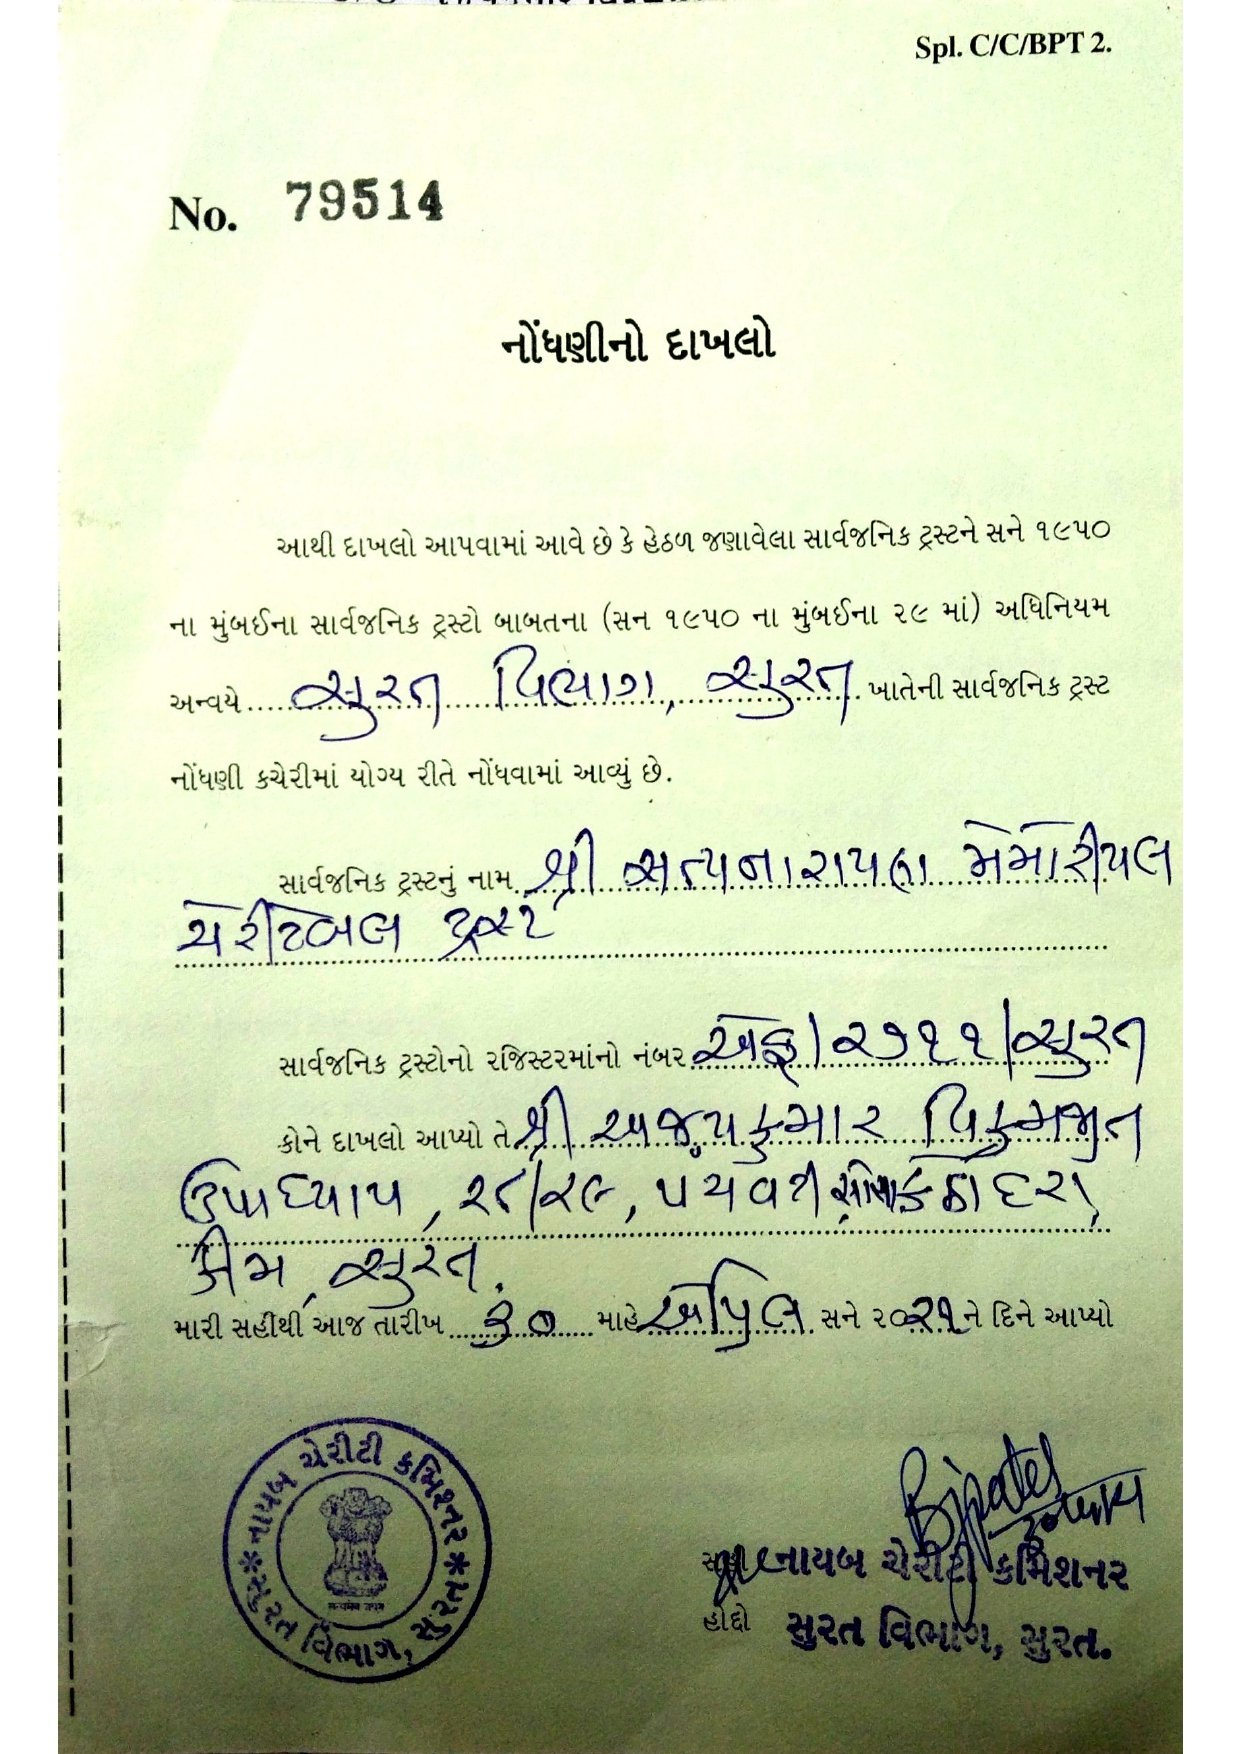 Spl. C/C/BPT 2.
No. 79514
નોંધણીનો દાખલો
આથી દાખલો આપવામાં આવે છે કે હેઠળ જણાવેલા સાર્વજનિક ટ્રસ્ટને સને ૧૯૫૦
ના મુંબઈના સાર્વજનિક ટ્રસ્ટો બાબતના (સન ૧૯૫૦ ના મુંબઈના ૨૯ માં) અધિનિયમ
અન્વયે સુરત વિભાગ, સુરત ખાતેની સાર્વજનિક ટ્રસ્ટ
નોંધણી કચેરીમાં યોગ્ય રીતે નોંધવામાં આવ્યું છે.
સાર્વજનિક ટ્રસ્ટનું નામ શ્રી સત્યનારાયણ મેમોરીયલ
ચેરીટેબલ ટ્રસ્ટ
સાર્વજનિક ટ્રસ્ટોનો રજિસ્ટરમાંનો નંબર એફ/૨૭૧૧/સુરત
કોને દાખલો આપ્યો તે શ્રી અજયકુમાર વિક્રમજીત
ઉપાધ્યાય, ૨૮/૨૯, પંચવટી કઠોદરા,
કીમ, સુરત.
મારી સહીથી આજ તારીખ ૩૦ માહે એપ્રિલ સને ૨૦૨૧ ને દિને આપ્યો
નાયબ ચેરીટી કમિશ્નર
સુરત વિભાગ, સુરત
Bjpatel
સહી નાયબ ચેરીટી કમિશનર
હોદ્દો સુરત વિભાગ, સુરત.